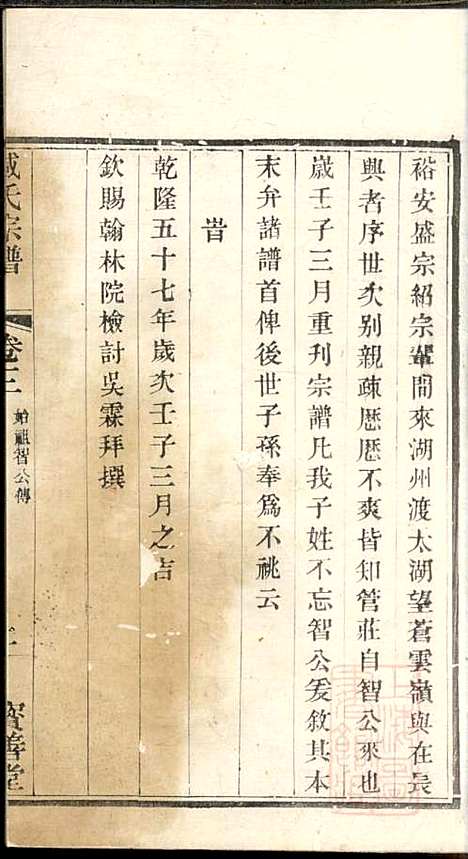 裕安盛宗紹宗輩間來湖州渡太湖望蒼雲嶺與在長
興者序世次别親疎歷歷不爽皆知管莊自智公來也
嵗壬子三月重刊宗譜凡我子姓不忘智公爰敘其本
末弁諸譜首俾後世子孫奉爲不祧云
旹
乾隆五十七年歲次壬子三月之吉
欽賜翰林院檢討吳霖拜撰
臧氏宗譜
卷三
始祖智公傳
寳善堂